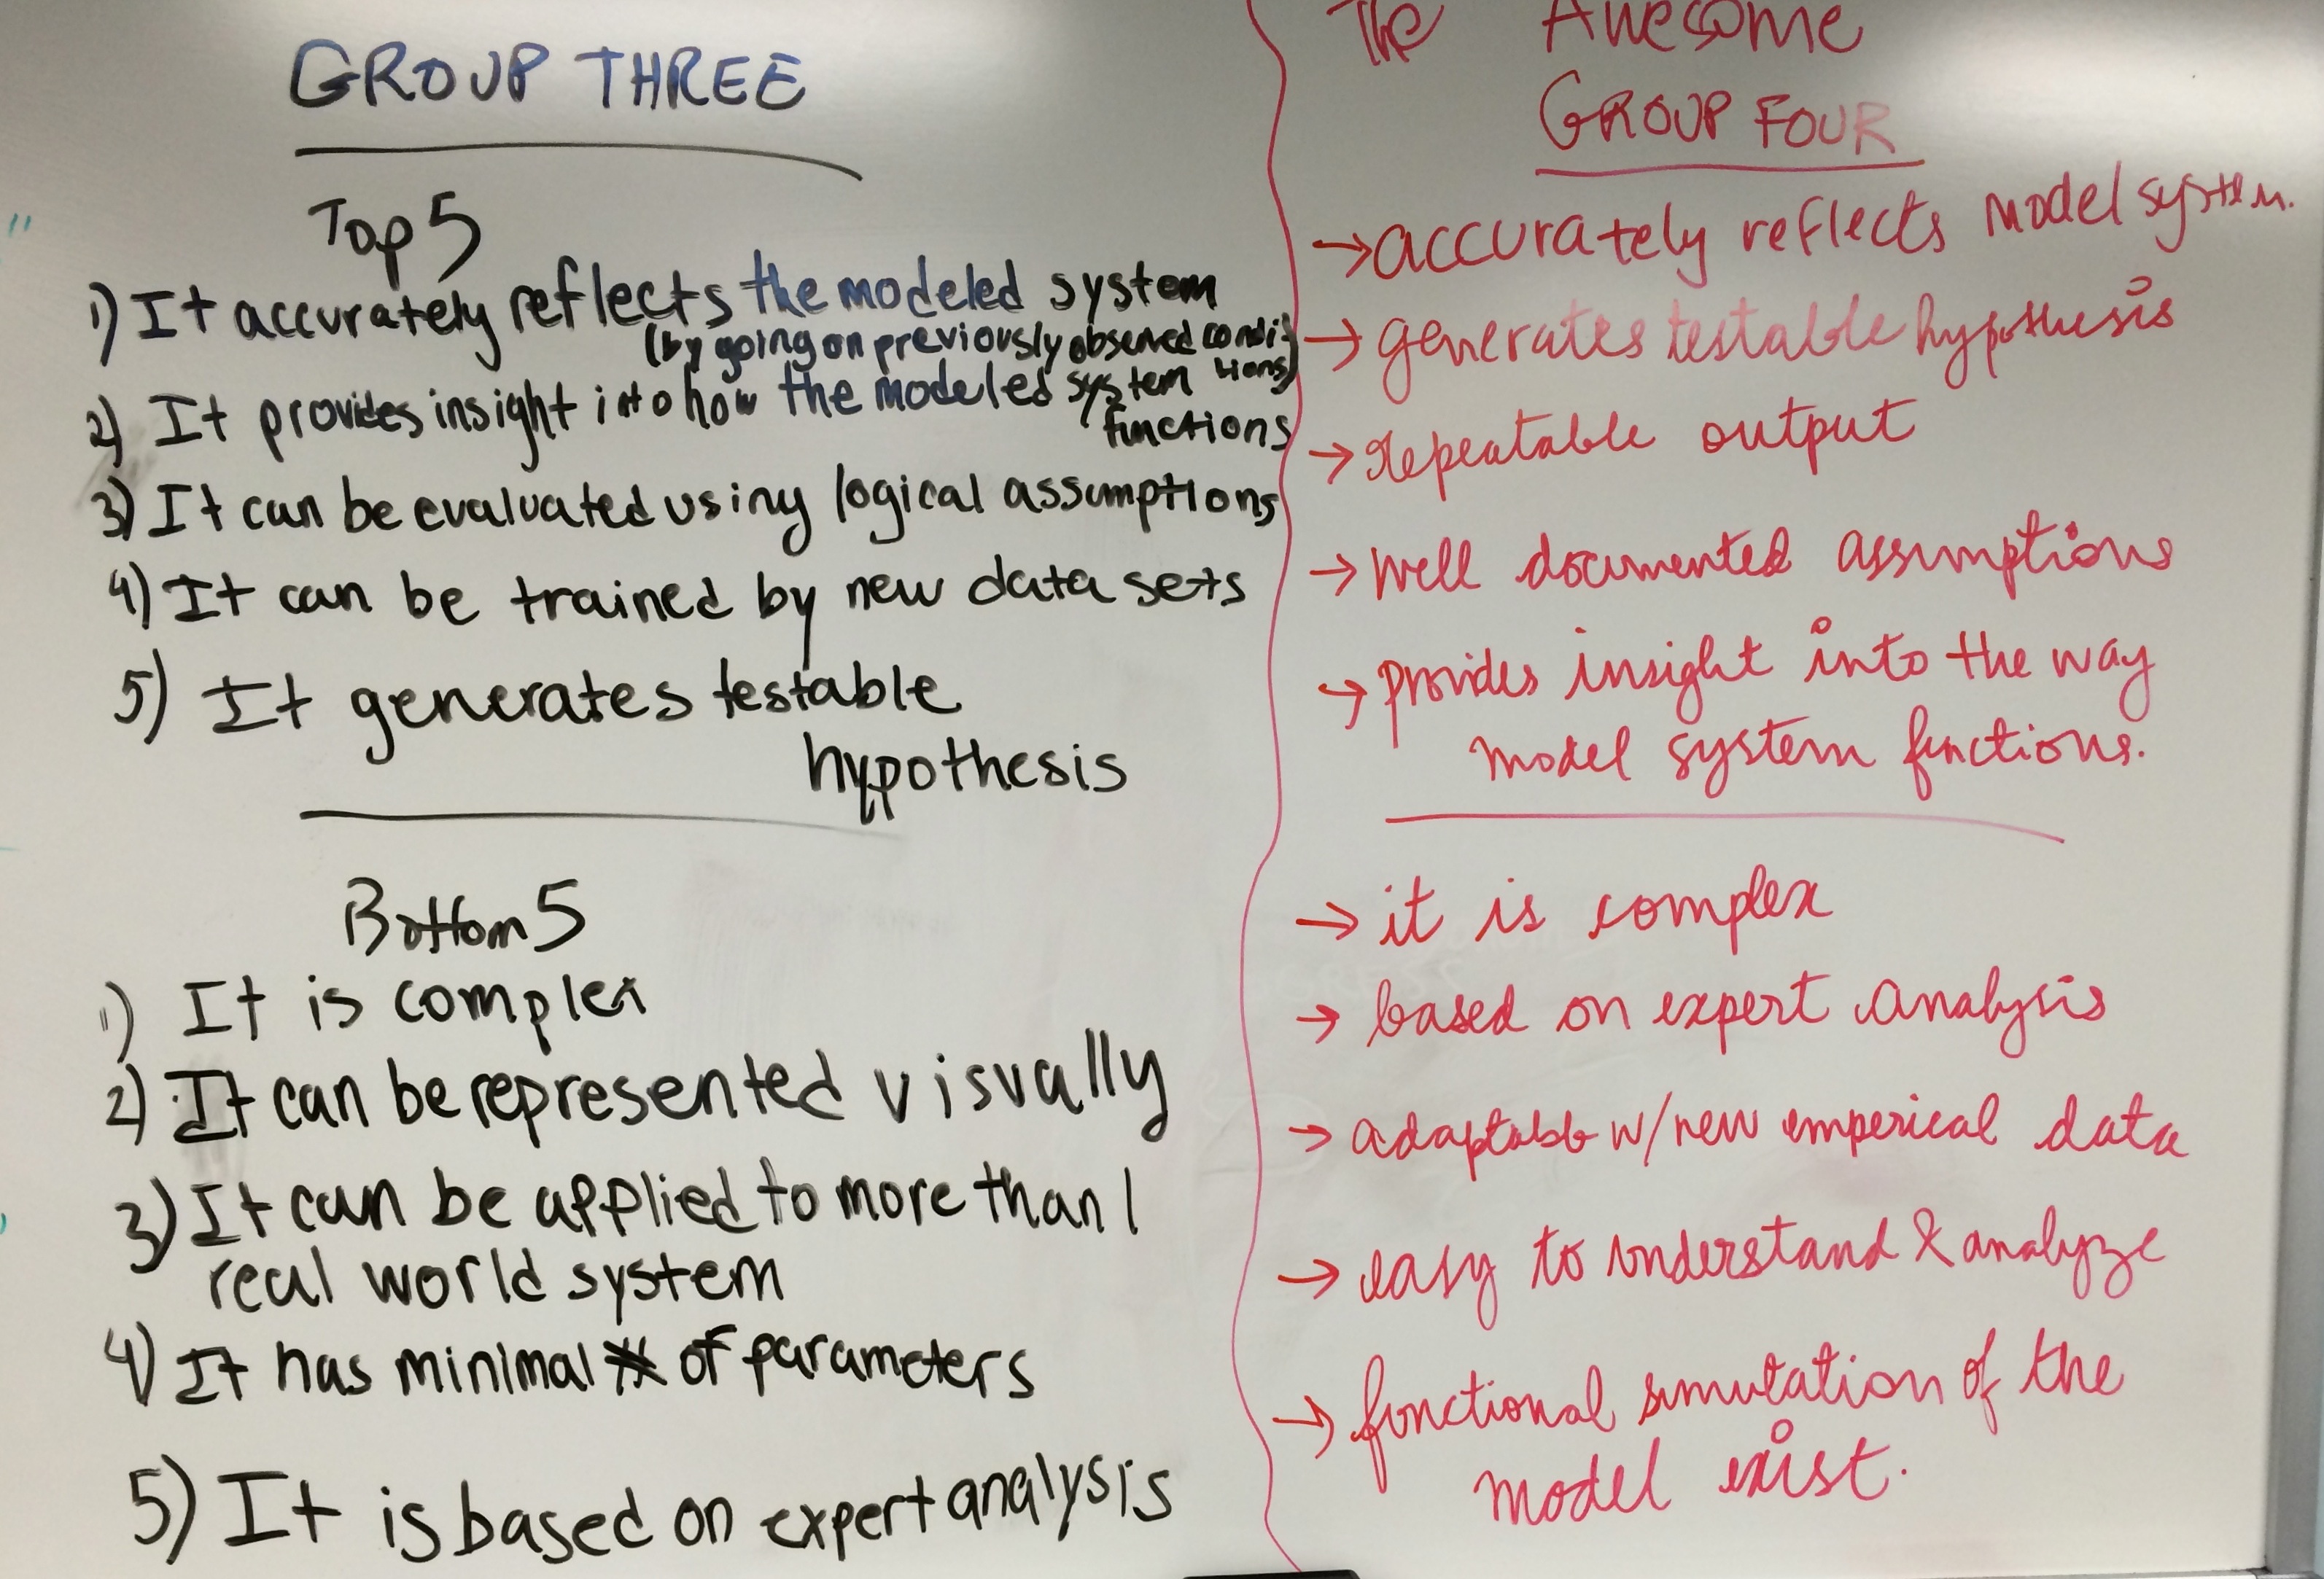 GROUP THREE
Top 5
1) It accurately reflects the modeled system
(by going on previously observed condi-
tions)
2) It provides insight into how the modeled system
functions
3) It can be evaluated using logical assumptions
4) It can be trained by new data sets
5) It generates testable
hypothesis
Bottom 5
1) It is complex
2) It can be represented visually
3) It can be applied to more than 1
real world system
4) It has minimal # of parameters
5) It is based on expert analysis
The Awesome
GROUP FOUR
→ accurately reflects model system.
→ generates testable hypothesis
→ Repeatable output
→ Well documented assumptions
→ provides insight into the way
model system functions.
→ it is complex
→ based on expert analysis
→ adaptable w/ new emperical data
→ easy to understand & analyze
→ functional simulation of the
model exist.